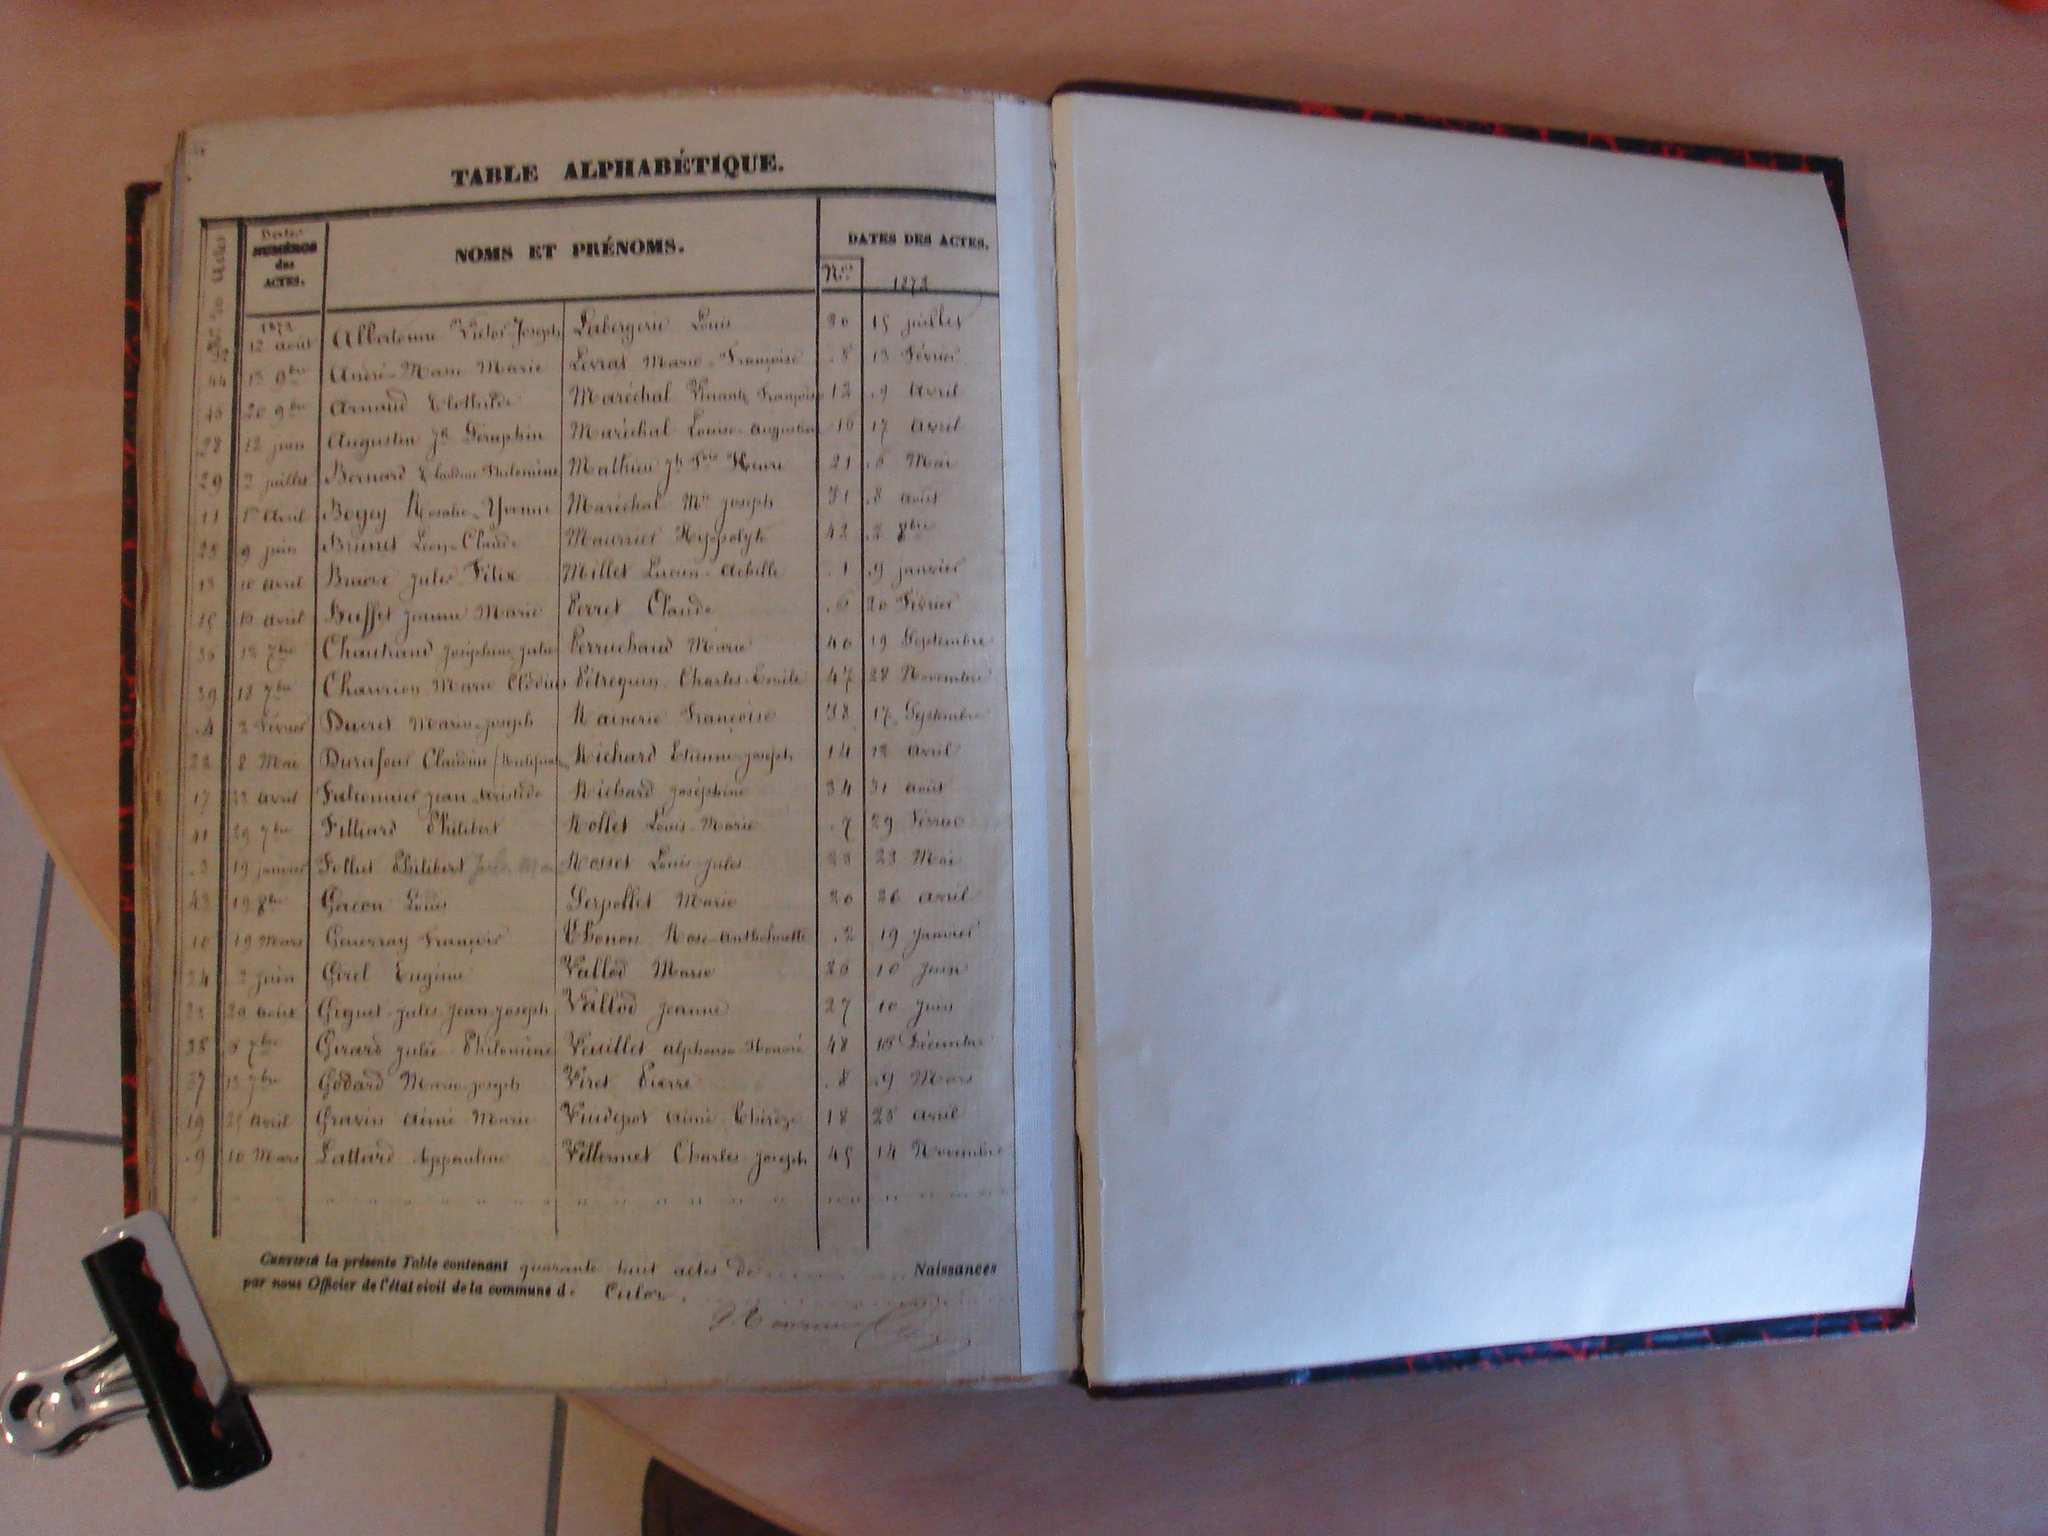 TABLE ALPHABÉTIQUE.
Nos des Actes
Dates
NUMÉROS
des
ACTES.
NOMS ET PRÉNOMS.
DATES DES ACTES.
Nos
1872
1872
12 août Albertonne Victor Joseph Labergerie Louis 30 15 juillet
44 13 8bre André Marie Levrat Marie Françoise 13 Février
46 20 9bre Arnaud Clothilde Maréchal Françoise 12 9 Avril
28 12 juin Augustin Jh Séraphin Maréchal Louise Augustine 16 17 Avril
29 2 juillet Bernard Claudine Philomène Mathieu Jh Henri 21 6 Mai
11 1er Avril Bogey Rosalie Yvonne Maréchal Mie Joseph 31 8 août
25 9 juin Brunet Léon Claude Maurrier Hippolyte 42 2 8bre
13 10 avril Jules Félix Millet Lucien Achille 1 9 janvier
15 16 avril Buffet Jeanne Marie Perret Claude 6 20 Février
36 12 7bre Chautrand Joséphine Julie Perruchaud Marie 40 19 Septembre
39 18 7bre Charrion Marie Clovis Pétrequin Charles Emile 47 28 Novembre
4 2 Février Ducret Marie Joseph Rainerie Françoise 38 17 Septembre
22 8 Mai Durafour Claudine Richard Etienne Joseph 14 12 avril
17 22 avril Falconnier Jean Aristide Richard Joséphine 34 31 août
41 29 7bre Filliard Philibert Rollet Louis Marie 7 29 Février
3 19 janvier Folliet Philibert Rosset Louis Jules 23 23 Mai
43 19 8bre Gacon Louis Serpollet Marie 20 26 avril
10 19 Mars Generray François Thonon Rose Anthelmette 2 19 janvier
24 2 juin Girel Eugénie Vallod Marie 26 10 Juin
20 août Giguet Jules Jean Joseph Vallod Jeanne 27 10 Juin
35 6 7bre Girard Julie Philomène Veuillet Alphonse Honoré 48 18 Décembre
37 13 7bre Godard Marie Joseph Viret Pierre 8 9 Mars
19 25 avril Gravin Aimé Marie Vuidepot Aimé Thérèze 18 25 avril
9 10 Mars Lattard Appauline Villermet Charles Joseph 45 14 Novembre
CERTIFIÉ la présente Table contenant quarante huit actes de Naissances
par nous Officier de l'état civil de la commune d. Culoz